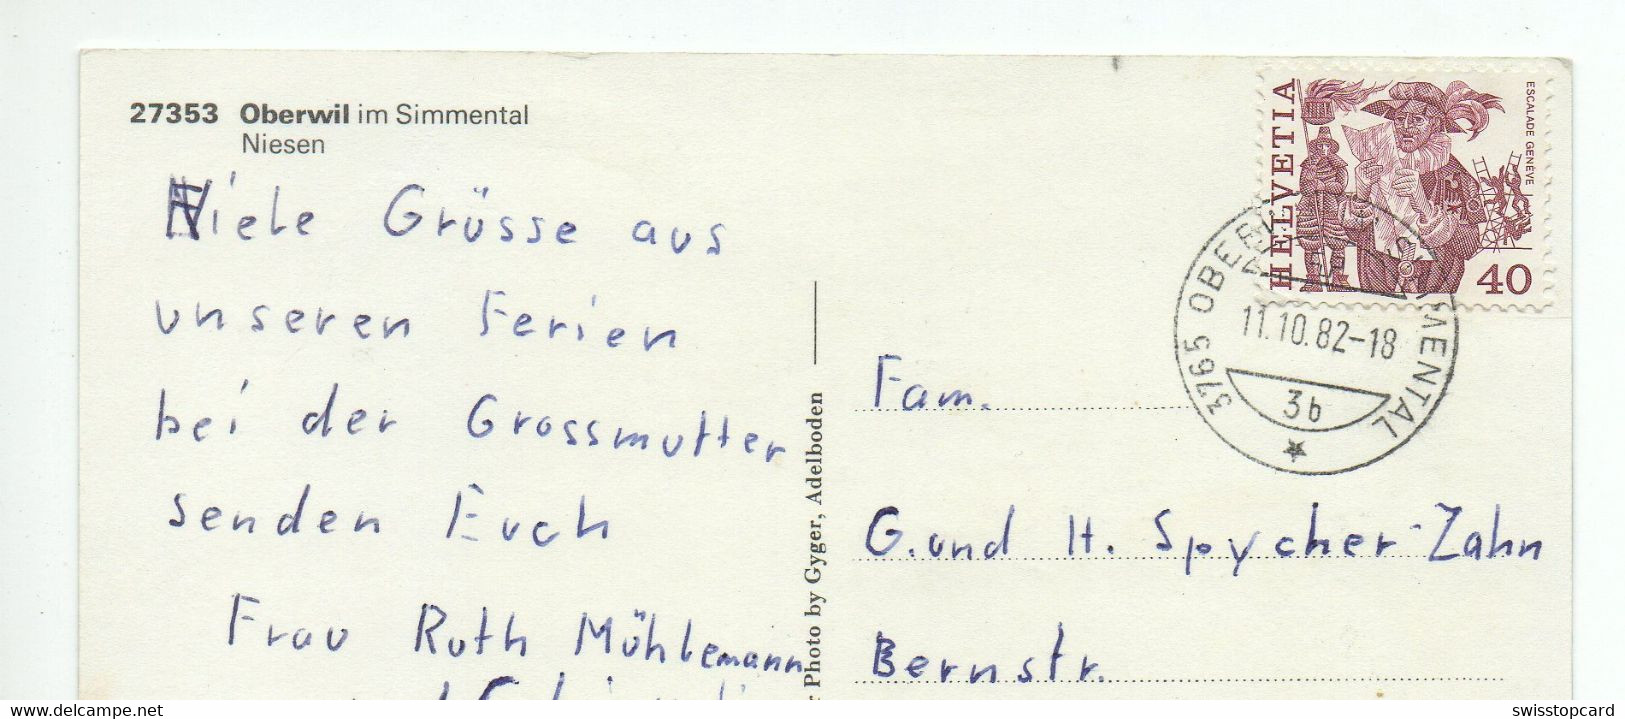 27353 Oberwil im Simmental
Niesen
Viele Grüsse aus
unseren Ferien
bei der Grossmutter
senden Euch
Frau Ruth Mühlemann
Photo by Gyger, Adelboden
HELVETIA
ESCALADE GENEVE
40
3765 OBERWIL IM SIMMENTAL
11.10.82-18
3b
Fam.
G. und H. Spycher-Zahn
Bernstr.
delcampe.net
swisstopcard